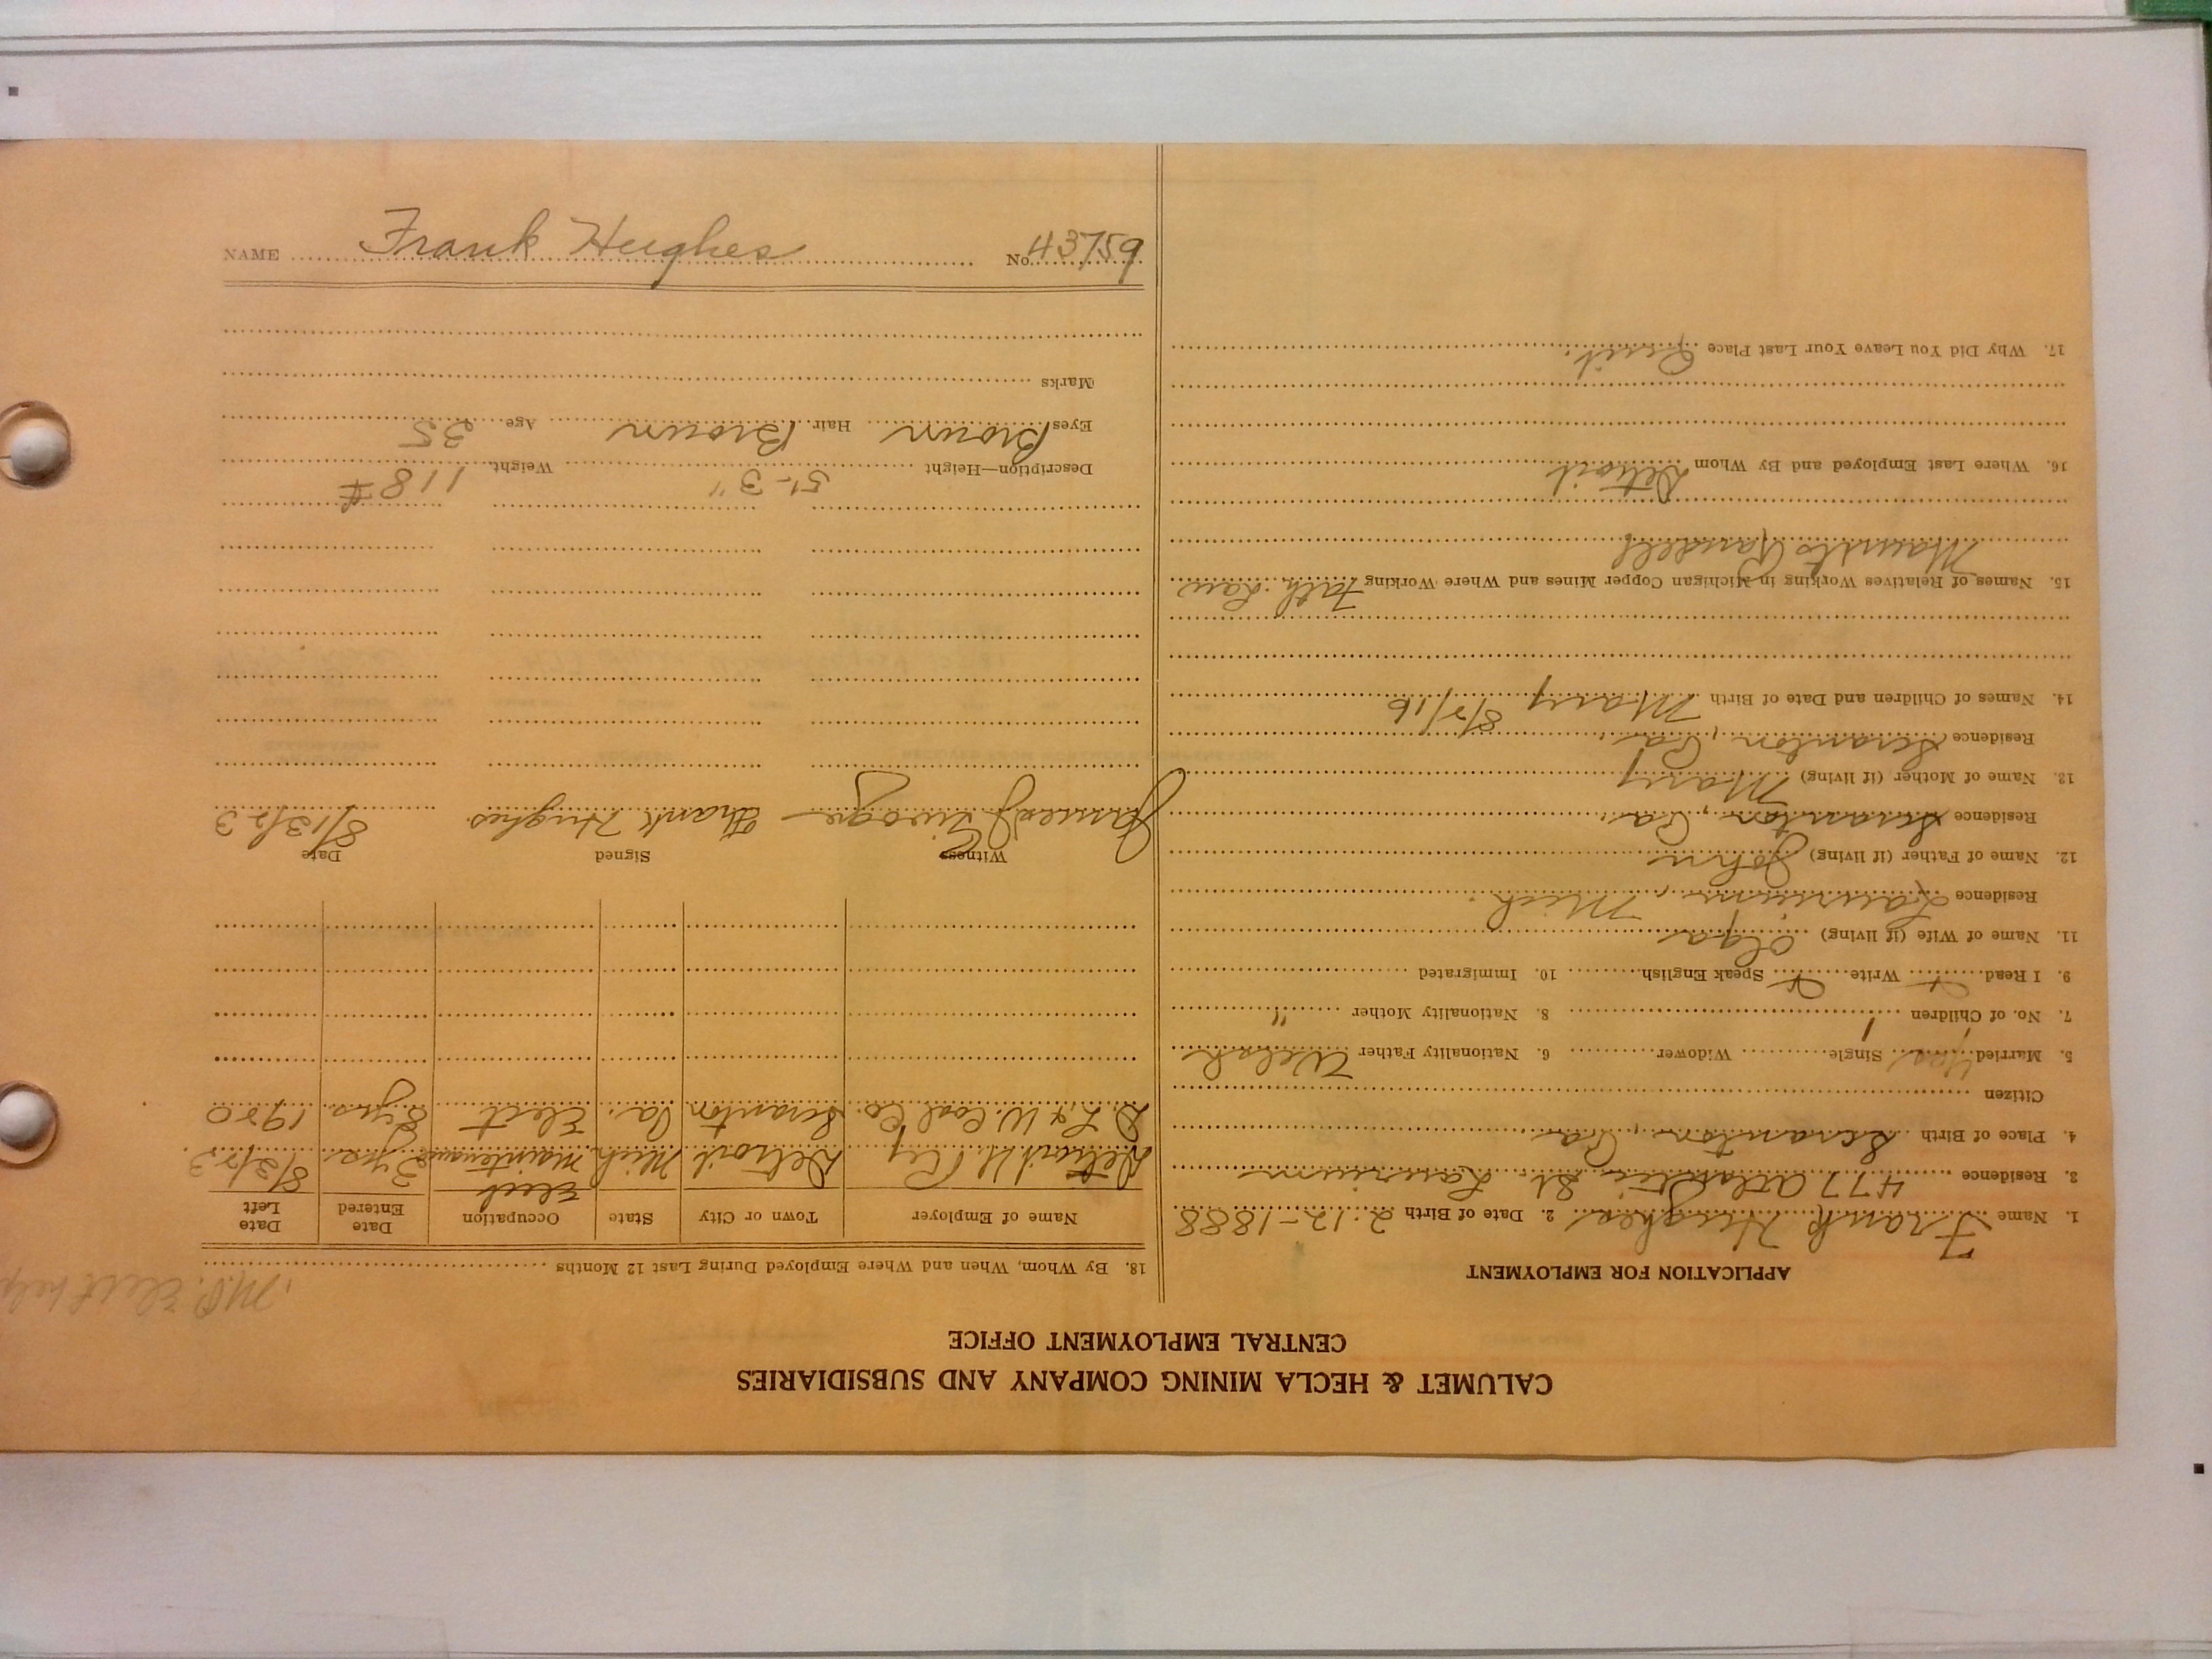 CALUMET & HECLA MINING COMPANY AND SUBSIDIARIES
CENTRAL EMPLOYMENT OFFICE
APPLICATION FOR EMPLOYMENT
1. Name Frank Hughes 2. Date of Birth 2-12-1888
3. Residence 477 Atlantic St. Laurium
4. Place of Birth Scranton, Pa.
Citizen
5. Married Yes Single Widower 6. Nationality Father Welsh
7. No. of Children 1 8. Nationality Mother "
9. I Read Write Speak English 10. Immigrated
11. Name of Wife (if living) Olga
Residence Laurium, Mich.
12. Name of Father (if living) John
Residence Scranton, Pa.
13. Name of Mother (if living) Mary
Residence Scranton, Pa.
14. Names of Children and Date of Birth Mary 8/2/16
15. Names of Relatives Working in Michigan Copper Mines and Where Working Fath. Law
16. Where Last Employed and By Whom Detroit
17. Why Did You Leave Your Last Place Quit.
M.P. Elect help
18. By Whom, When and Where Employed During Last 12 Months
Name of Employer Town or City State Occupation Date Entered Date Left
Detroit U. Ry Detroit Mich Elect maintenance 3 yrs 8/3/23
D. L. & W. Coal Co. Scranton Pa. Elect 2 yrs. 1920
Witness Signed Date
James Frank Hughes 8/13/23
Description—Height 5'-3" Weight 118 #
Eyes Brown Hair Brown Age 35
Marks
NAME Frank Hughes No. 43759